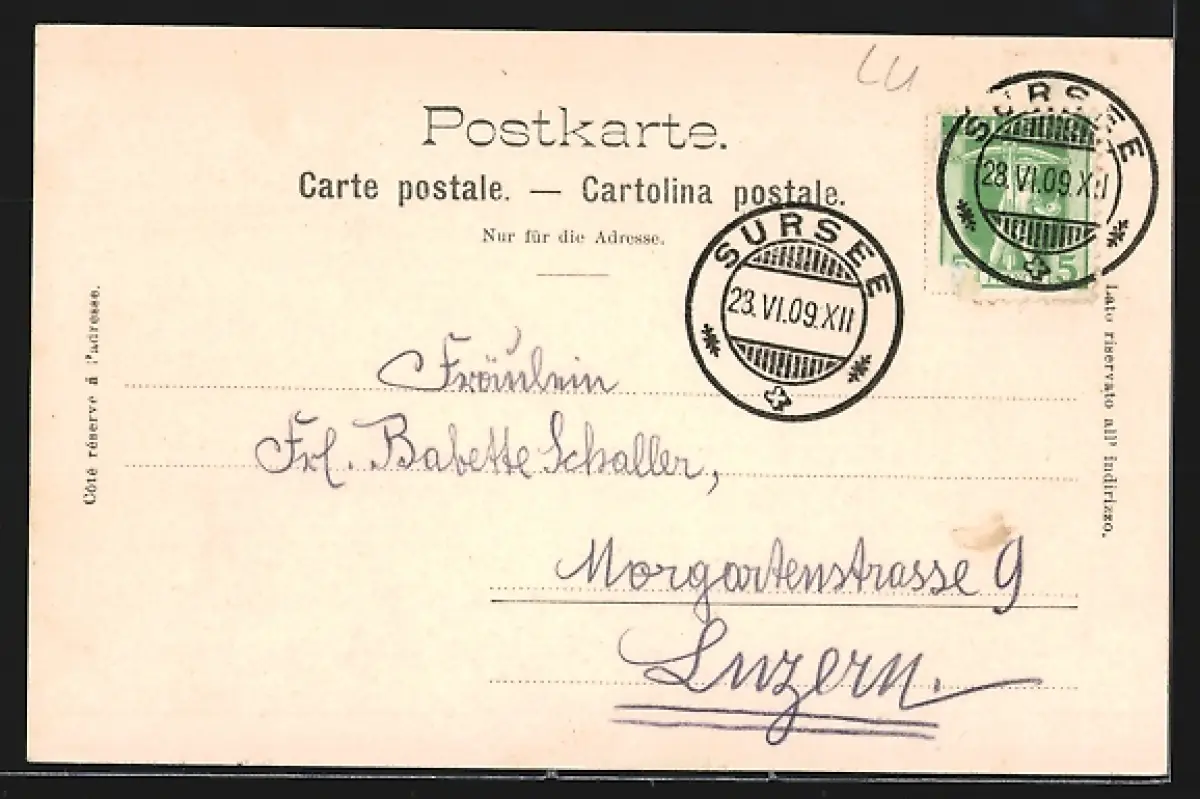 LU
Postkarte.
Carte postale. — Cartolina postale.
Nur für die Adresse.
SURSEE
28. VI. 09. XII
5 5
SURSEE
23. VI. 09. XII
Côté réservé à l'adresse.
Lato riservato all' indirizzo.
Fräulein
Frl. Babette Schaller,
Morgartenstrasse 9
Luzern.